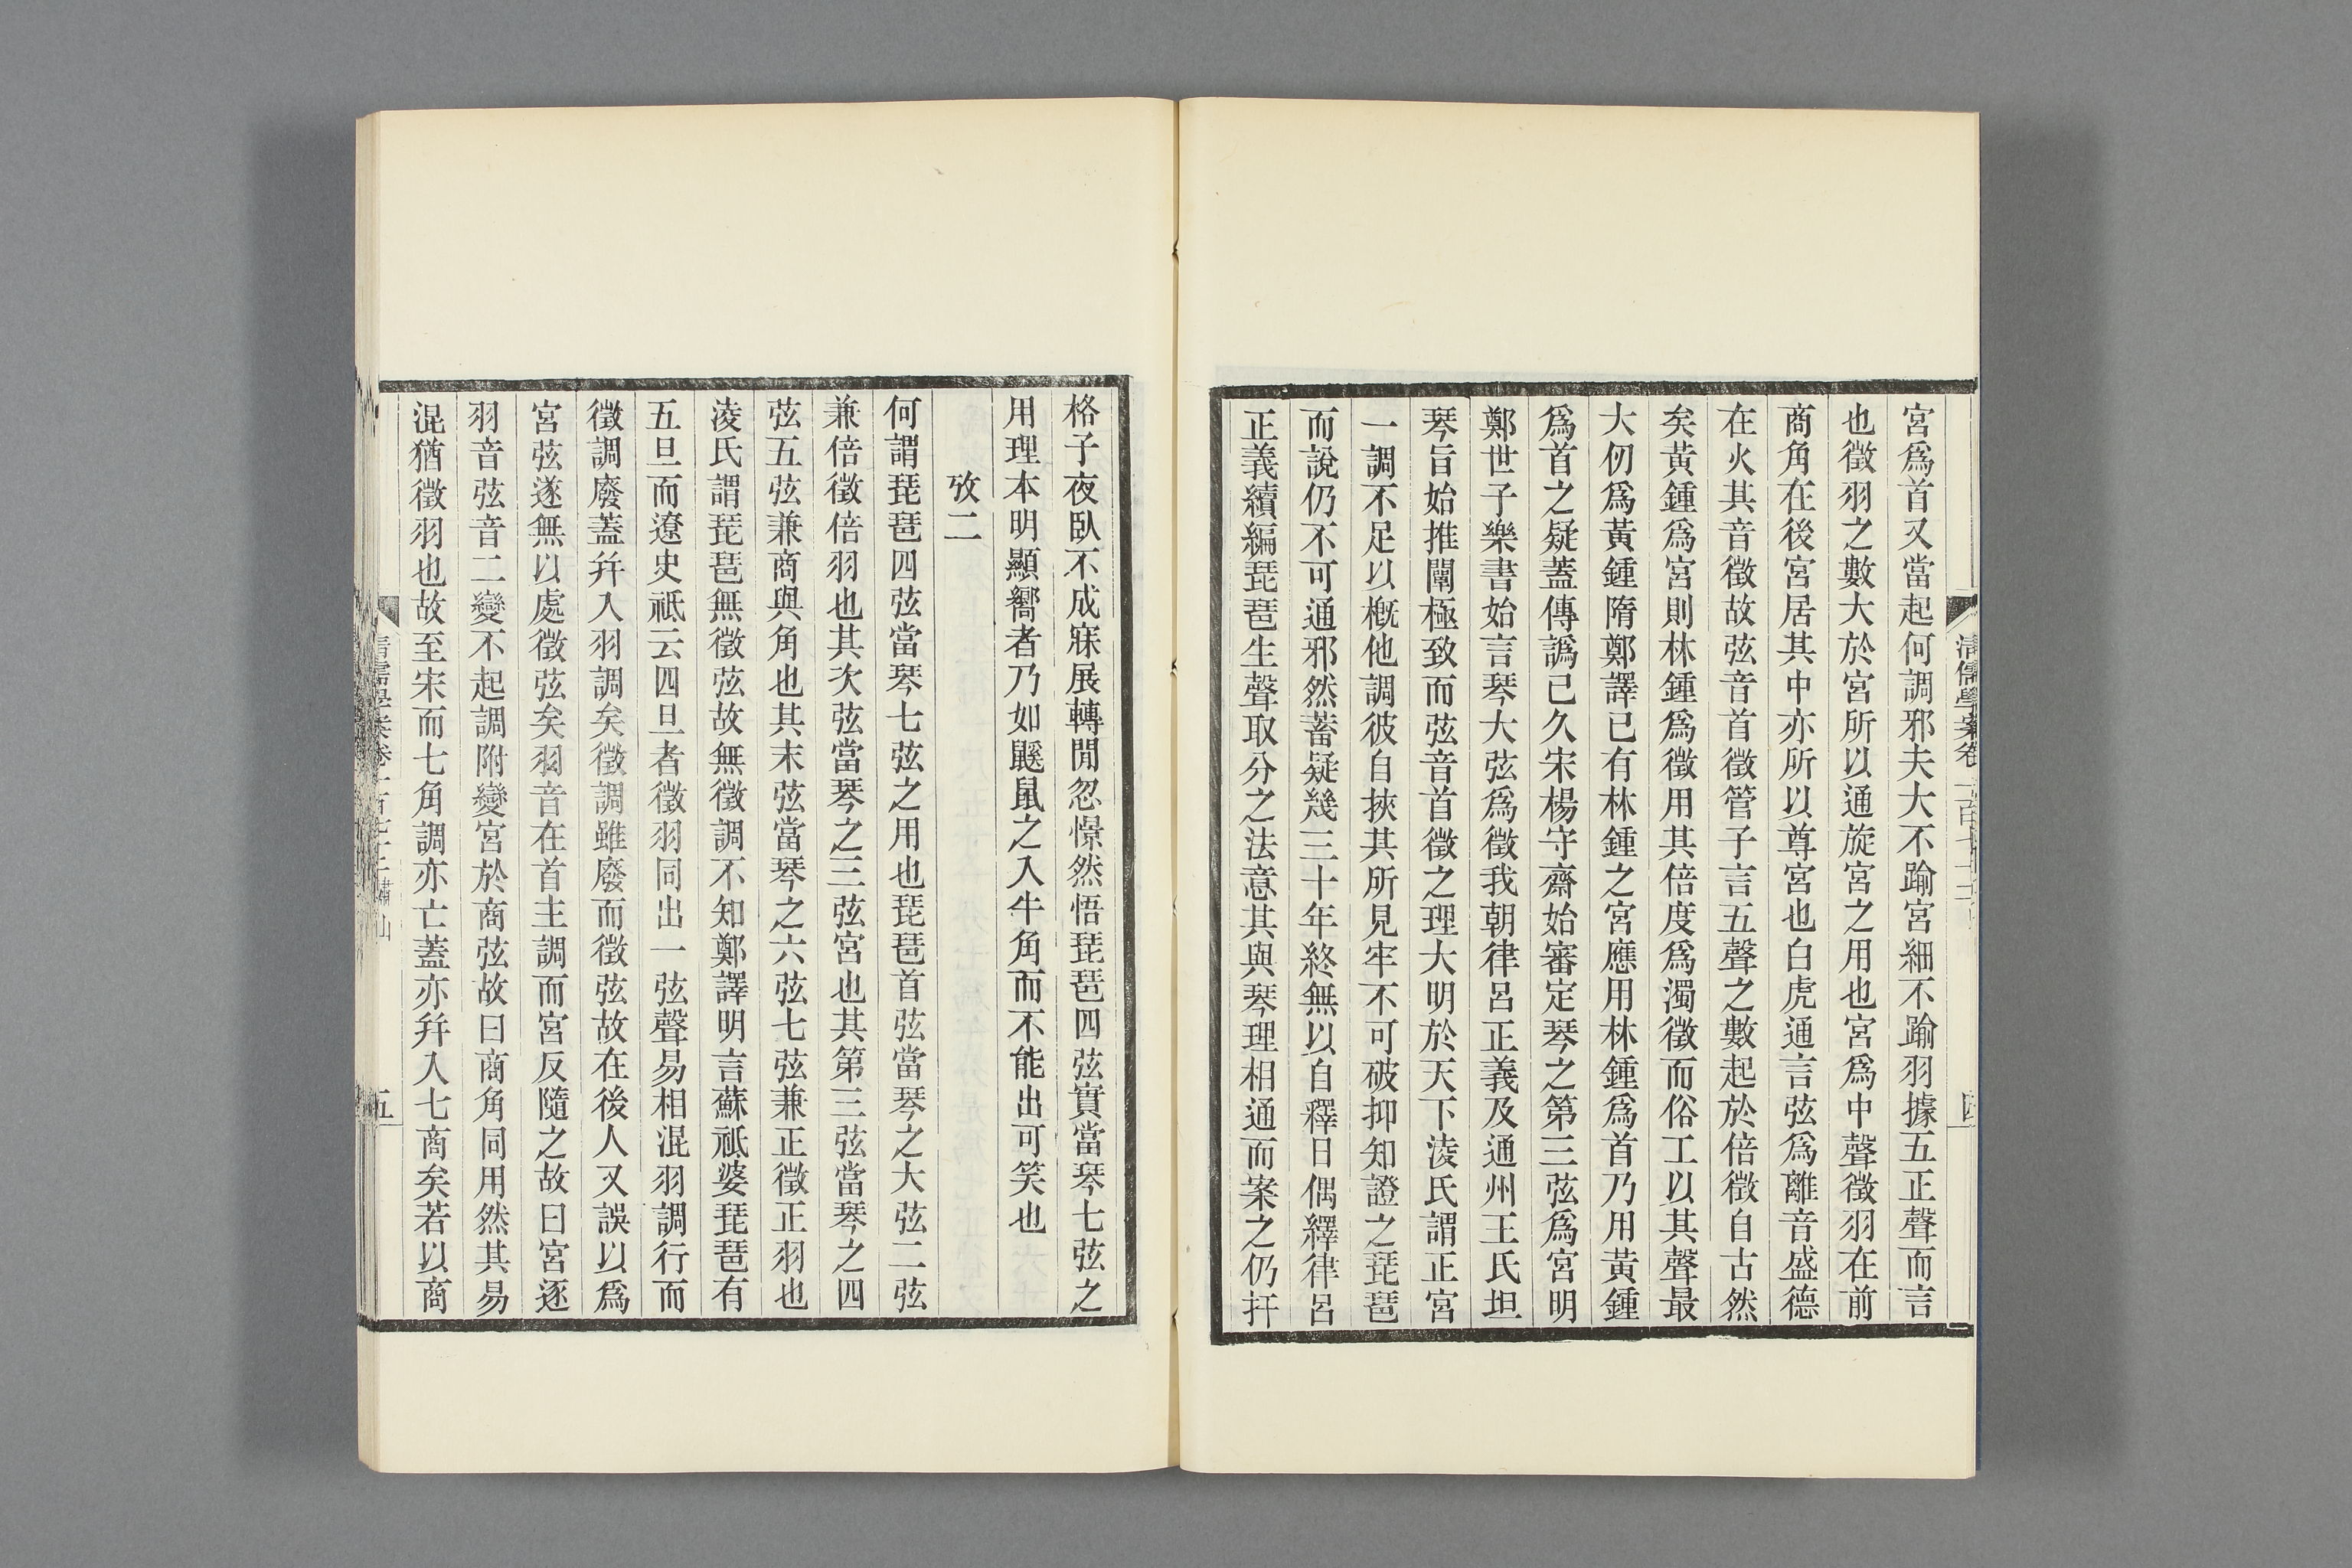 清儒學案卷一百七十二
四
宮爲首又當起何調邪夫大不踰宮細不踰羽據五正聲而言
也徵羽之數大於宮所以通旋宮之用也宮爲中聲徵羽在前
商角在後宮居其中亦所以尊宮也白虎通言弦爲離音盛德
在火其音徵故弦音首徵管子言五聲之數起於倍徵自古然
矣黃鍾爲宮則林鍾爲徵用其倍度爲濁徵而俗工以其聲最
大仞爲黃鍾隋鄭譯已有林鍾之宮應用林鍾爲首乃用黃鍾
爲首之疑蓋傳譌已久宋楊守齋始審定琴之第三弦爲宮明
鄭世子樂書始言琴大弦爲徵我朝律呂正義及通州王氏坦
琴旨始推闡極致而弦音首徵之理大明於天下淩氏謂正宮
一調不足以槪他調彼自挾其所見牢不可破抑知證之琵琶
而說仍不可通邪然蓄疑幾三十年終無以自釋日偶繹律呂
正義續編琵琶生聲取分之法意其與琴理相通而案之仍扞
格子夜臥不成寐展轉閒忽憬然悟琵琶四弦實當琴七弦之
用理本明顯嚮者乃如鼷鼠之入牛角而不能出可笑也
攷二
何謂琵琶四弦當琴七弦之用也琵琶首弦當琴之大弦二弦
兼倍徵倍羽也其次弦當琴之三弦宮也其第三弦當琴之四
弦五弦兼商與角也其末弦當琴之六弦七弦兼正徵正羽也
淩氏謂琵琶無徵弦故無徵調不知鄭譯明言蘇祗婆琵琶有
五旦而遼史祗云四旦者徵羽同出一弦聲易相混羽調行而
徵調廢蓋幷入羽調矣徵調雖廢而徵弦故在後人又誤以爲
宮弦遂無以處徵弦矣羽音在首主調而宮反隨之故曰宮逐
羽音弦音二變不起調附變宮於商弦故曰商角同用然其易
混猶徵羽也故至宋而七角調亦亡蓋亦幷入七商矣若以商
五